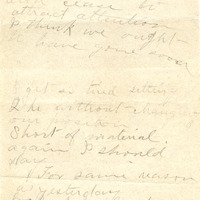 and cease to
attract attention
I think we ought
have gone soon
I get so tired sitting
here without changing
our position
Short of material
again I should
say
For same reason
as yesterday